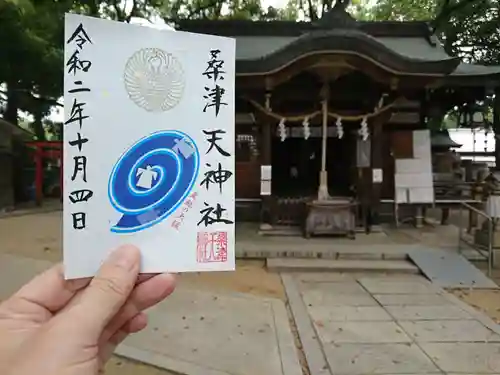 桑津天神社
令和二年十月四日